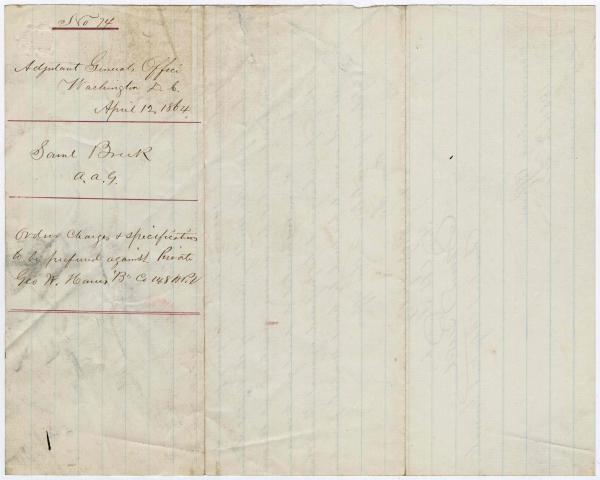 No 74
Adjutant Generals Office
Washington D. C.
April 12, 1864.
Saml Breck
A. A. G.
Orders Charges & specifications
to be prefered against Private
Geo W. "B" Co 148 P.V